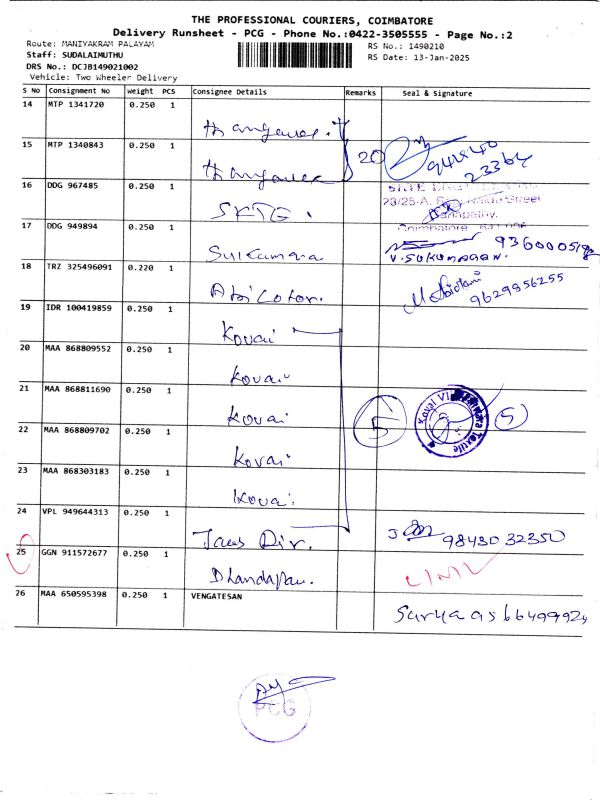 THE PROFESSIONAL COURIERS, COIMBATORE
Delivery Runsheet - PCG - Phone No.:0422-3505555 - Page No.:2
Route: MANIYAKRAM PALAYAM RS No.: 1490210
Staff: SUDALAIMUTHU RS Date: 13-Jan-2025
DRS No.: DCJB149021002
Vehicle: Two Wheeler Delivery
S No Consignment No Weight PCS Consignee Details Remarks Seal & Signature
14 MTP 1341720 0.250 1
15 MTP 1340843 0.250 1 20
16 DDG 967485 0.250 1 SKTG.
23/25-A,
Coimbatore
17 DDG 949894 0.250 1 Sulkumara V.SUKUMARAN.
18 TRZ 325496091 0.220 1 9629956255
19 IDR 100419859 0.250 1 Kovai
20 MAA 868809552 0.250 1 Kovai
21 MAA 868811690 0.250 1 Kovai 5 Kovai Textile 5
22 MAA 868809702 0.250 1 Kovai
23 MAA 868303183 0.250 1 Kovai
24 VPL 949644313 0.250 1 Dir. 9843032350
25 GGN 911572677 0.250 1 Dhandapan.
26 MAA 650595398 0.250 1 VENGATESAN Surya
PCG